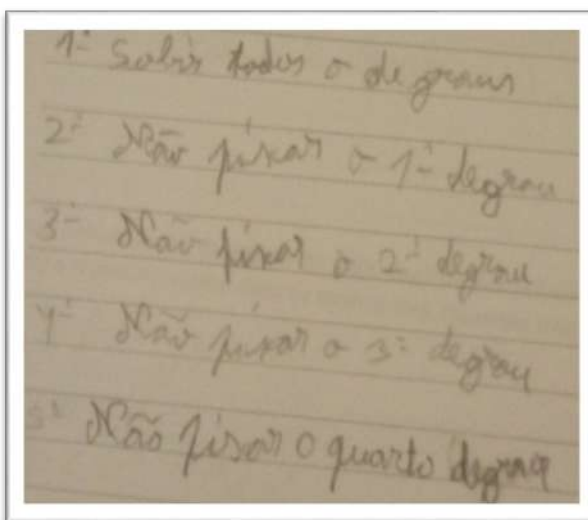 1º Subir todos o degraus
2º Não pisar o 1º degrau
3º Não pisar o 2º degrau
4º Não pisar o 3º degrau
5º Não pisar o quarto degrau